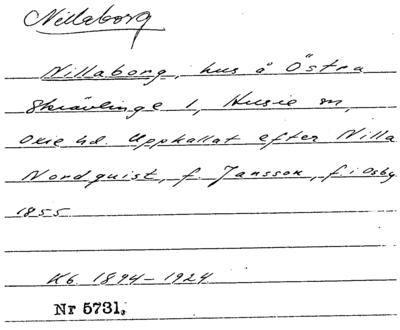 Nillaborg
Nillaborg, hus å Östra
Skrävlinge 1, Husie sn,
Oxie hd. Uppkallat efter Nilla
Nordquist, f. Jansson, f. i Osby
1855
Kb. 1894-1924
Nr 5731,